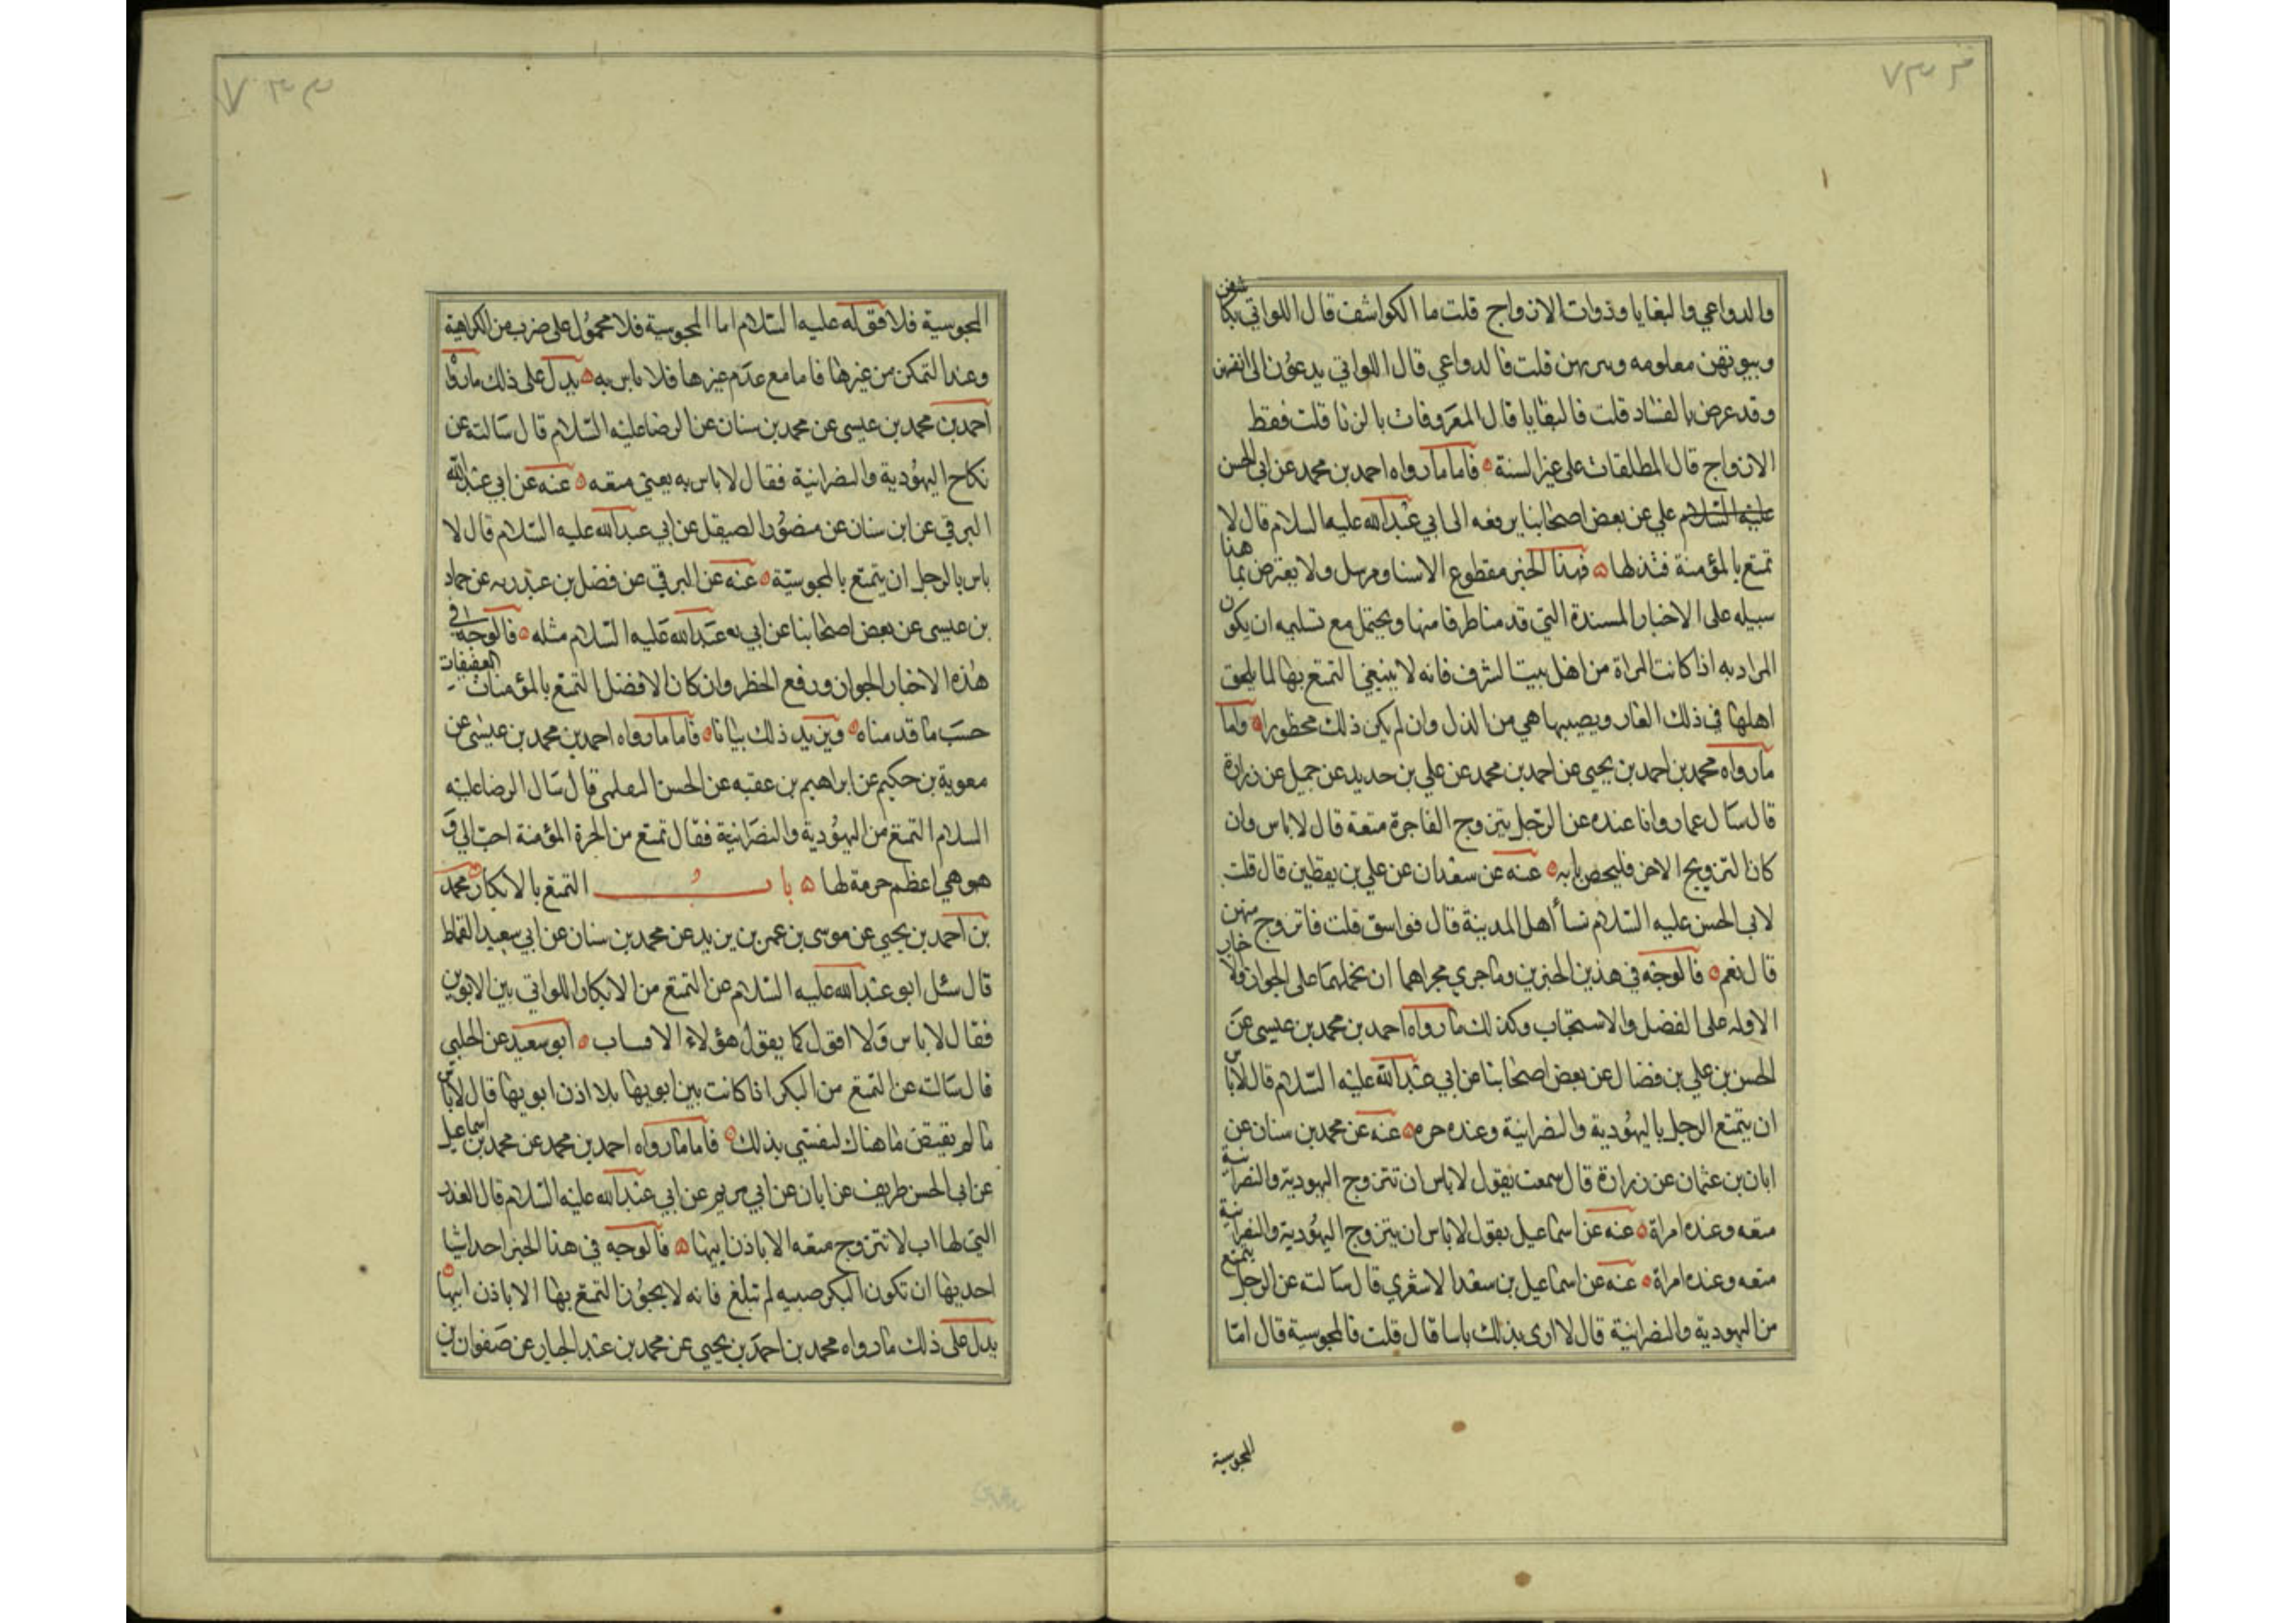 والدواعي والبغايا وذوات الازواج قلت ما الكواشف قال اللواتي يكاشفن
وبيوتهن معلومه ويزرن قلت فالدواعي قال اللواتي يدعون الى انفسهن
وقد عرض بالفساد قلت فالبغايا قال المعروفات بالزنا قلت فقط
الازواج قال المطلقات على غير السنة فاما ما رواه احمد بن محمد عن ابي الحسن
عليه السلام علي عن بعض اصحابنا يرفعه الى ابي عبدالله عليه السلام قال لا
تمتع بالمؤمنة فتذلها فهذا الخبر مقطوع الاسناد مرسل ولا يعترض بما هذا
سبيله على الاخبار المسندة التي قدمنا طرفا منها ويحتمل مع تسليمه ان يكون
المراد به اذا كانت المراة من اهل بيت الشرف فانه لا ينبغي التمتع بها لما يلحق
اهلها في ذلك العار ويصيبها هي من الذل وان لم يكن ذلك محظورا واما
ما رواه محمد بن احمد بن يحيى عن احمد بن محمد عن علي بن حديد عن جميل عن زرارة
قال سال عمار وانا عنده عن الرجل يتزوج الفاجرة متعة قال لا باس وان
كان التزويج الاخر فليحصن بابه عنه عن سعدان عن علي بن يقطين قال قلت
لابي الحسن عليه السلام نساء اهل المدينة قال فواسق قلت فاتزوج منهن
قال نعم فالوجه في هذين الخبرين وما جرى مجراهما ان نحملهما على الجواز والاخبار
الاوله على الفضل والاستحباب وكذلك ما رواه احمد بن محمد بن عيسى عن
الحسن بن علي بن فضال عن بعض اصحابنا عن ابي عبدالله عليه السلام قال لا باس
ان يتمتع الرجل باليهودية والنصرانية وعنده حره عنه عن محمد بن سنان عن
ابان بن عثمان عن زرارة قال سمعت يقول لا باس ان تتزوج اليهودية والنصرانية
متعه وعنده امراة عنه عن اسماعيل يقول لا باس ان يتزوج اليهودية والنصرانية
متعه وعنده امراة عنه عن اسماعيل بن سعد الاشعري قال سالته عن الرجل يتمتع
من اليهودية والنصرانية قال لا ارى بذلك باسا قال قلت فالمجوسية قال اما
المجوسية
المجوسية فلا فقوله عليه السلام اما المجوسية فلا محمول على ضرب من الكراهية
وعند التمكن من غيرها فاما مع عدم غيرها فلا باس به يدل على ذلك ما رواه
احمد بن محمد بن عيسى عن محمد بن سنان عن الرضا عليه السلام قال سالته عن
نكاح اليهودية والنصرانية فقال لا باس به يعني متعه عنه عن ابي عبدالله
البرقي عن ابن سنان عن منصور الصيقل عن ابي عبدالله عليه السلام قال لا
باس بالرجل ان يتمتع بالمجوسية عنه عن البرقي عن فضل بن عبدربه عن حماد
بن عيسى عن بعض اصحابنا عن ابي عبدالله عليه السلام مثله فالوجه في
هذه الاخبار الجواز ورفع الحظر وان كان الافضل التمتع بالمؤمنات العفيفات
حسب ما قدمناه ويزيد ذلك بيانا فاما ما رواه احمد بن محمد بن عيسى عن
معوية بن حكيم عن ابراهيم بن عقبه عن الحسن التفليسي قال سال الرضا عليه
السلام التمتع من اليهودية والنصرانية فقال تمتع من الحرة المؤمنة احب الي و
هو هي اعظم حرمة لها باب التمتع بالابكار محمد
بن احمد بن يحيى عن موسى بن عمر بن يزيد عن محمد بن سنان عن ابي سعيد القماط
قال سئل ابو عبدالله عليه السلام عن التمتع من الابكار اللواتي بين الابوين
فقال لا باس ولا اقول كما يقول هؤلاء الاقشاب ابو سعيد عن الحلبي
قال سالته عن التمتع من البكر اذا كانت بين ابويها بلا اذن ابويها قال لا باس
ما لم يقتض ما هناك لتفشي بذلك فاما ما رواه احمد بن محمد عن محمد بن اسماعيل
عن ابي الحسن ظريف عن ابان عن ابي مريم عن ابي عبدالله عليه السلام قال العذراء
التي لها اب لا تتزوج متعه الا باذن ابيها فالوجه في هذا الخبر احد اشيا
احديها ان تكون البكر صبيه لم تبلغ فانه لا يجوز التمتع بها الا باذن ابيها
يدل على ذلك ما رواه محمد بن احمد بن يحيى عن محمد بن عبد الجبار عن صفوان بن